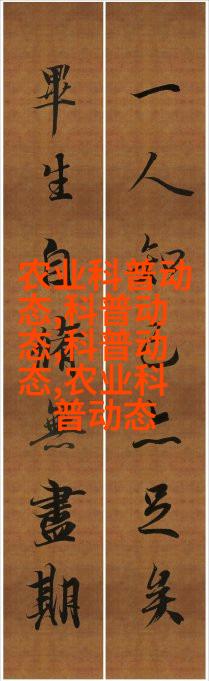 一人知己亦足矣
畢生自脩無盡期
农业科普动
态,科普动
态,科普动
态,农业科
普动态